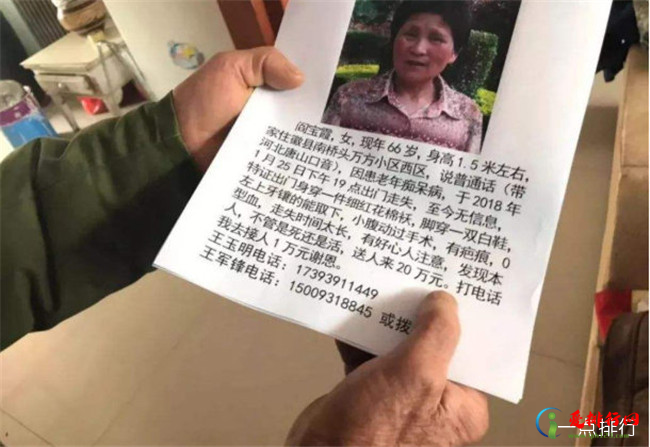 阎宝霞，女，现年66岁，身高1.5米左右，
家住徽县南桥头万方小区西区，说普通话（带
河北唐山口音），因患老年痴呆病，于2018年
1月25日下午19点出门走失，至今无信息，
特证出门身穿一件细红花棉袄，脚穿一双白鞋，
左上牙镶的能取下，小腹动过手术，有疤痕，O
型血，走失时间太长，有好心人注意，发现本
人，不管是死还是活，送人来20万元。打电话
我去接人1万元谢恩。
王玉明电话：17393911449
王军锋电话：15009318845 或拨
一点排行